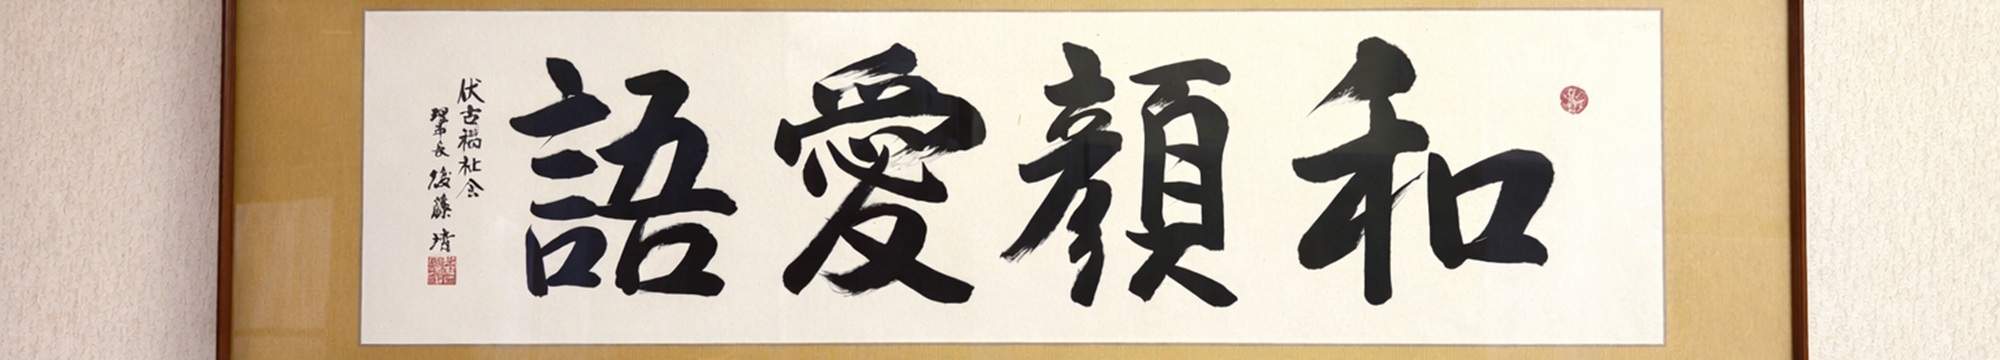 和顔愛語
伏古福祉会
理事長 後藤 靖